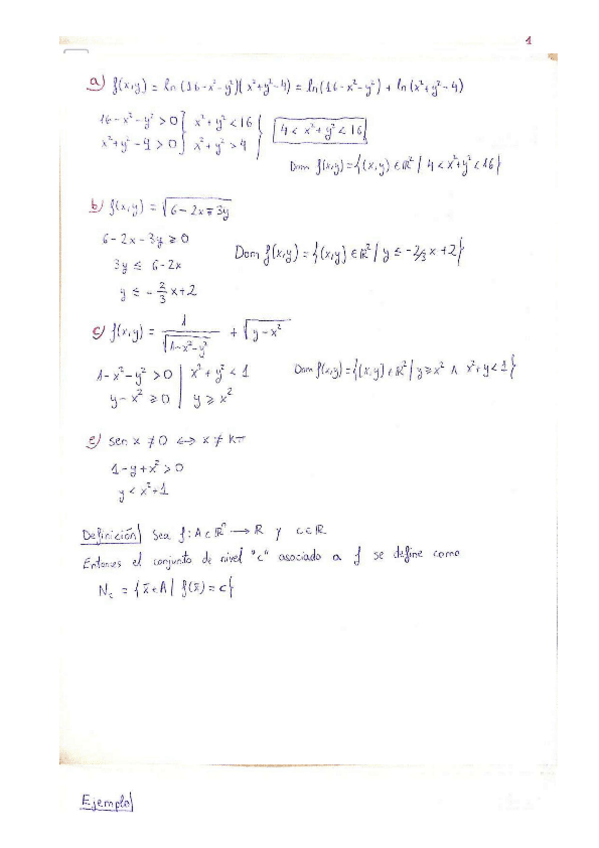 1
a) f(x,y) = ln (16-x²-y²)(x²+y²-4) = ln(16-x²-y²) + ln(x²+y²-4)
16-x²-y² > 0 } x²+y² < 16 } 4 < x²+y² < 16
x²+y²-4 > 0 } x²+y² > 4
Dom f(x,y) = {(x,y) ∈ ℝ² / 4 < x²+y² < 16}
b) f(x,y) = √(6-2x-3y)
6-2x-3y ≥ 0
3y ≤ 6-2x
y ≤ -2/3 x+2
Dom f(x,y) = {(x,y) ∈ ℝ² / y ≤ -2/3 x+2}
c) f(x,y) = 1/√(1-x²-y²) + √(y-x²)
1-x²-y² > 0 | x²+y² < 1
y-x² ≥ 0 | y ≥ x²
Dom f(x,y) = {(x,y) ∈ ℝ² / y ≥ x² ∧ x²+y < 1}
e) sen x ≠ 0 ⟷ x ≠ kπ
1-y+x² > 0
y < x²+1
Definición Sea f: A ⊂ ℝⁿ → ℝ y c ∈ ℝ.
Entonces el conjunto de nivel "c" asociado a f se define como
N_c = {x̄ ∈ A / f(x̄) = c}
Ejemplo